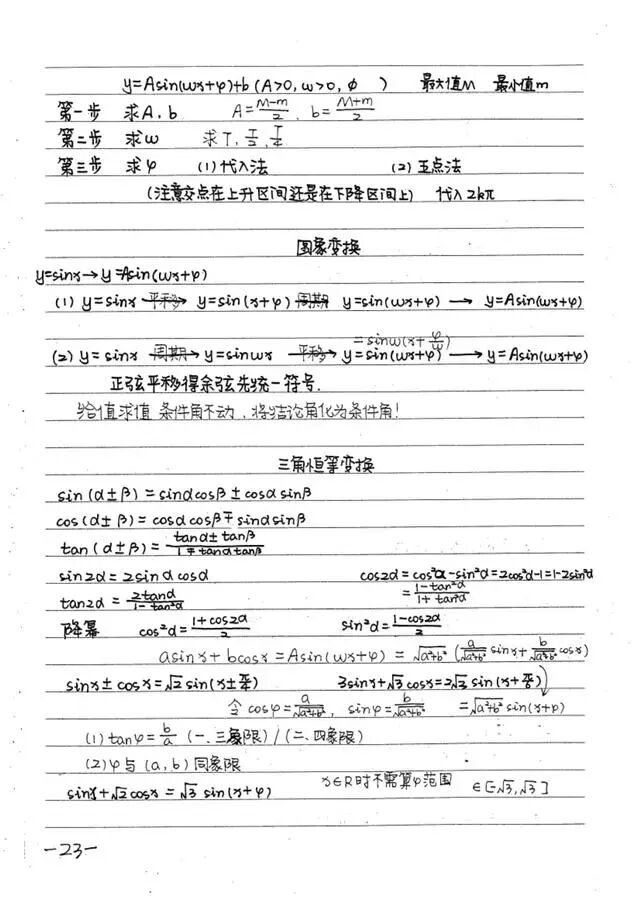 y=Asin(ωx+φ)+b (A>0, ω>0, ϕ ) 最大值M 最小值m
第一步 求A、b A=\frac{M-m}{2}, b=\frac{M+m}{2}
第二步 求ω 求T, \frac{T}{2}, \frac{T}{4}
第三步 求φ (1)代入法 (2)五点法
(注意交点在上升区间还是在下降区间上) 代入2kπ
图象变换
y=sinx→y=Asin(ωx+φ)
(1) y=sinx 平移→ y=sin(x+φ) 周期 y=sin(ωx+φ) → y=Asin(ωx+φ)
=sinω(x+\frac{φ}{ω})
(2) y=sinx 周期→ y=sinωx 平移→ y=sin(ωx+φ) → y=Asin(ωx+φ)
正弦平移得余弦先统一符号.
给值求值 条件角不动，将结论角化为条件角！
三角恒等变换
sin(α±β)=sinαcosβ±cosαsinβ
cos(α±β)=cosαcosβ∓sinαsinβ
tan(α±β)=\frac{tanα±tanβ}{1∓tanαtanβ}
sin2α=2sinαcosα cos2α=cos²α-sin²α=2cos²α-1=1-2sin²α
tan2α=\frac{2tanα}{1-tan²α} =\frac{1-tan²α}{1+tan²α}
降幂 cos²α=\frac{1+cos2α}{2} sin²α=\frac{1-cos2α}{2}
asinx+bcosx=Asin(ωx+φ)=\sqrt{a²+b²}(\frac{a}{\sqrt{a²+b²}}sinx+\frac{b}{\sqrt{a²+b²}}cosx)
sinx±cosx=√2sin(x±\frac{π}{4}) 3sinx+√3cosx=2√3sin(x+\frac{π}{6})
令cosφ=\frac{a}{\sqrt{a²+b²}}, sinφ=\frac{b}{\sqrt{a²+b²}} =\sqrt{a²+b²}sin(x+φ)
(1)tanφ=\frac{b}{a} (一、三象限)/(二、四象限)
(2)φ与(a,b)同象限
sinx+√2cosx=√3sin(x+φ) x∈R时不需算φ范围 ∈[-√3,√3]
-23-